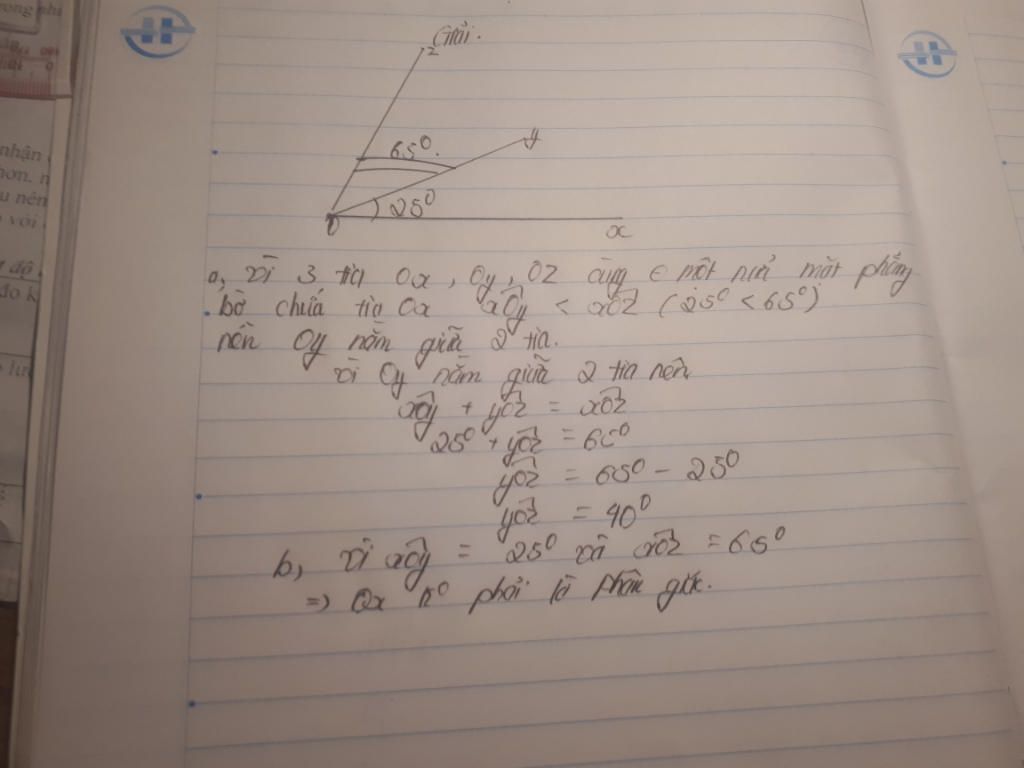 Giải.
z
65°.
y
25°
O
x
a, Vì 3 tia Ox, Oy, Oz cùng ∈ một nửa mặt phẳng
bờ chứa tia Ox xÔy < xÔz (25° < 65°)
nên Oy nằm giữa 2 tia.
Vì Oy nằm giữa 2 tia nên
xÔy + yÔz = xÔz
25° + yÔz = 65°
yÔz = 65° - 25°
yÔz = 40°
b, Vì xÔy = 25° và xÔz = 65°
=> Ox k° phải là phân giác.
nhận
hơn.
u nên
với
đo k